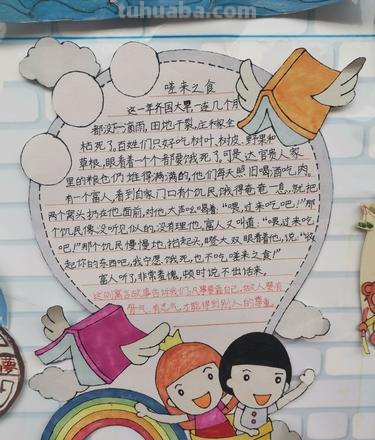 tuhuaba.com
嗟来之食
这一年齐国大旱,一连几个月
都没下一滴雨,田地干裂,庄稼全
枯死了,百姓们只好吃树叶、树皮、野果和
草根,眼看着一个个都要饿死了,可是达官贵人家
里的粮仓仍堆得满满的,他们每天照旧喝酒吃肉。
有一个富人,看到自家门口有饥民饿得奄奄一息,就把
两个窝头扔在他面前,对他大声吆喝着:“喂,过来吃吧!”那
个饥民像没听见似的,没有理他,富人又叫道:“喂过来吃
吧!”那个饥民慢慢地抬起头,瞪大双眼看着他,说:“收
起你的东西吧,我宁愿饿死,也不吃,嗟来之食!”
富人听了,非常羞愧,顿时说不出话来。
这则寓言故事告诉我们:凡事要靠自己,做人要有
骨气,有志气,才能得到别人的尊重。